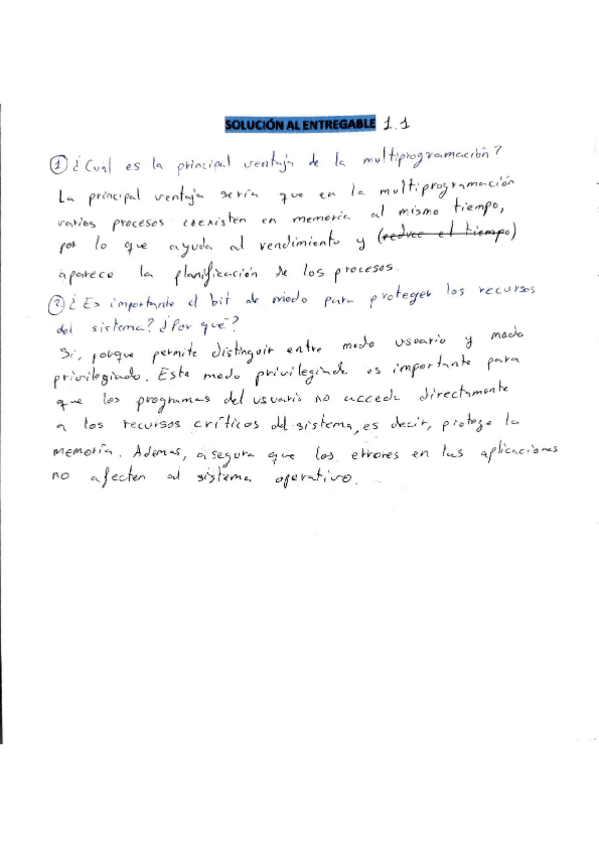 SOLUCIÓN AL ENTREGABLE 1.1
① ¿Cuál es la principal ventaja de la multiprogramación?
La principal ventaja sería que en la multiprogramación
varios procesos coexisten en memoria al mismo tiempo,
por lo que ayuda al rendimiento y (reduce el tiempo)
aparece la planificación de los procesos.
② ¿Es importante el bit de modo para proteger los recursos
del sistema? ¿Por qué?
Si, porque permite distinguir entre modo usuario y modo
privilegiado. Este modo privilegiado es importante para
que los programas del usuario no acceda directamente
a los recursos críticos del sistema, es decir, protege la
memoria. Ademas, asegura que los errores en las aplicaciones
no afecten al sistema operativo.